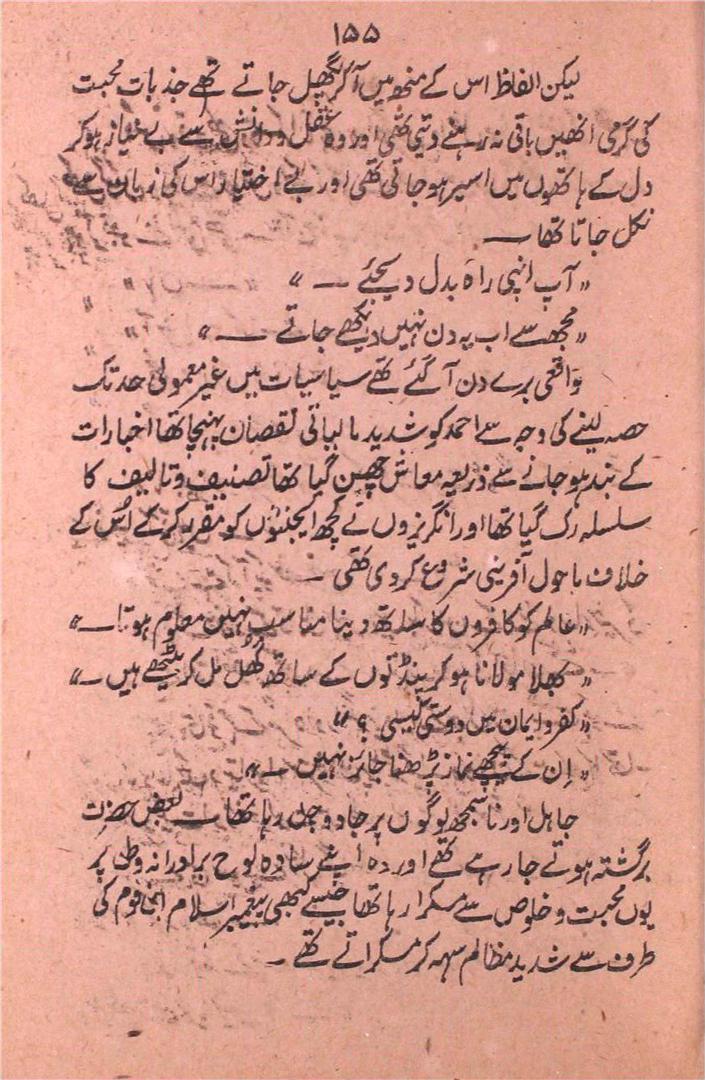 ۱۵۵
لیکن الفاظ اس کے منھ میں آکر پگھل جاتے تھے جذبات محبت
کی گرمی انھیں باقی نہ رہنے دیتی تھی اور وہ عقل و دانش سے بے نیاز ہو کر
دل کے ہاتھوں میں اسیر ہو جاتی تھی اور بے اختیار اس کی زبان سے
نکل جاتا تھا ۔
" آپ اپنی راہ بدل دیجئے ۔ "
" مجھ سے اب یہ دن نہیں دیکھے جاتے ۔ "
واقعی برے دن آ گئے تھے سیاسیات میں غیر معمولی حد تک
حصہ لینے کی وجہ سے احمد کو شدید مالیاتی نقصان پہنچا تھا اخبارات
کے بند ہو جانے سے ذریعہ معاش چھن گیا تھا تصنیف و تالیف کا
سلسلہ رک گیا تھا اور انگریزوں نے کچھ ایجنٹوں کو مقرر کر کے اُس کے
خلاف ماحول آفرینی شروع کر دی تھی ۔
" عالم کو کافروں کا ساتھ دینا مناسب نہیں معلوم ہوتا ۔ "
" بھلا مولانا ہو کر پنڈتوں کے ساتھ گھُل مل کر بیٹھے ہیں ۔ "
" کفر و ایمان میں دوستی کیسی ؟ "
" اِن کے پیچھے نماز پڑھنا جائز نہیں ۔ "
جاہل اور ناسمجھ لوگوں پر جادو چل رہا تھا ۔ بعض حضرت
برگشتہ ہوتے جا رہے تھے اور وہ اپنے سادہ لوح برادرانہ وطن پر
یوں محبت و خلوص سے مسکرا رہا تھا جیسے کبھی پیغمبر اسلام اپنی قوم کی
طرف سے شدید مظالم سہہ کر مسکراتے تھے ۔